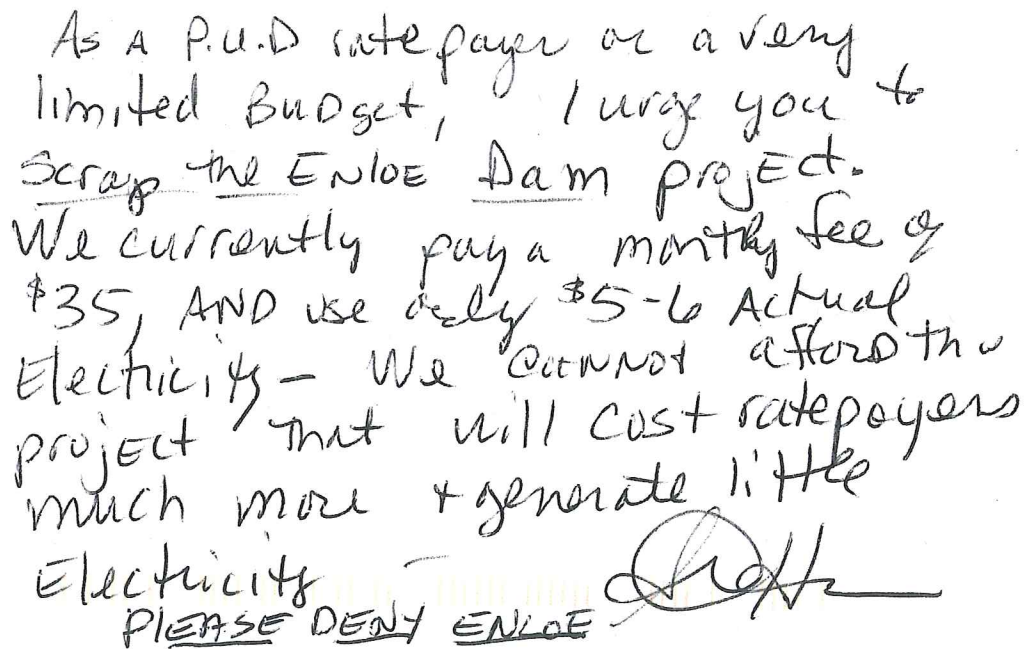 As A P.U.D ratepayer on a very
limited Budget, I urge you to
Scrap the ENLOE Dam projEct.
We currently pay a monthly fee of
$35, AND use only $5-6 Actual
Electricity - We CANNOT affORD the
projEct that will cost ratepayers
much more + generate little
Electricity -
PlEASE DENY ENLOE